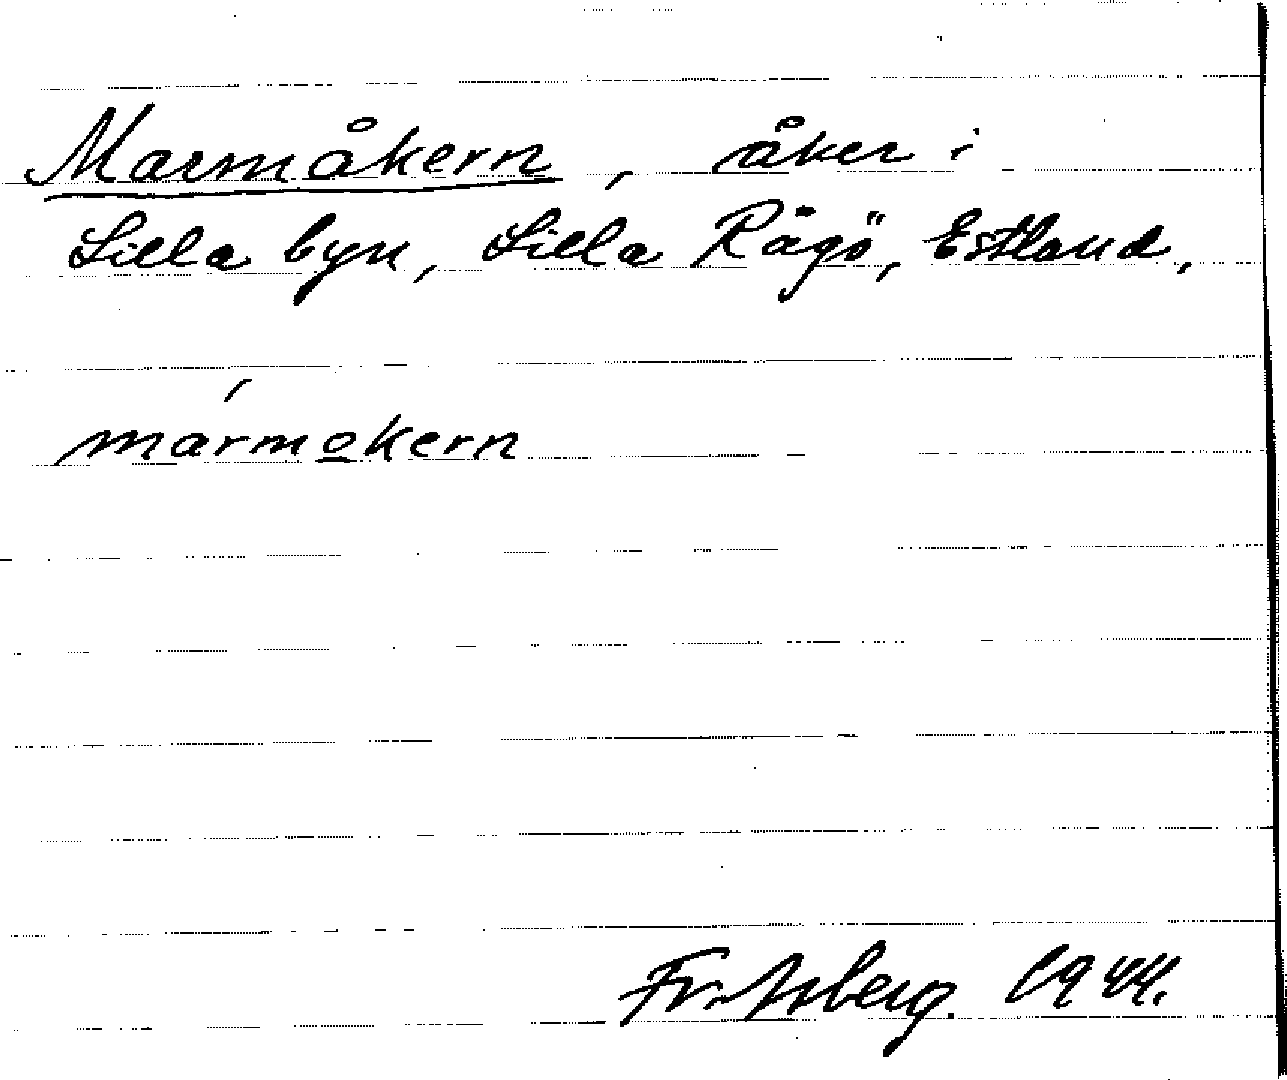 Marmåkern, åker i
Lilla byn, Lilla Rågö, Estland.
mármo̲kern
Fr. Isberg. 1944.